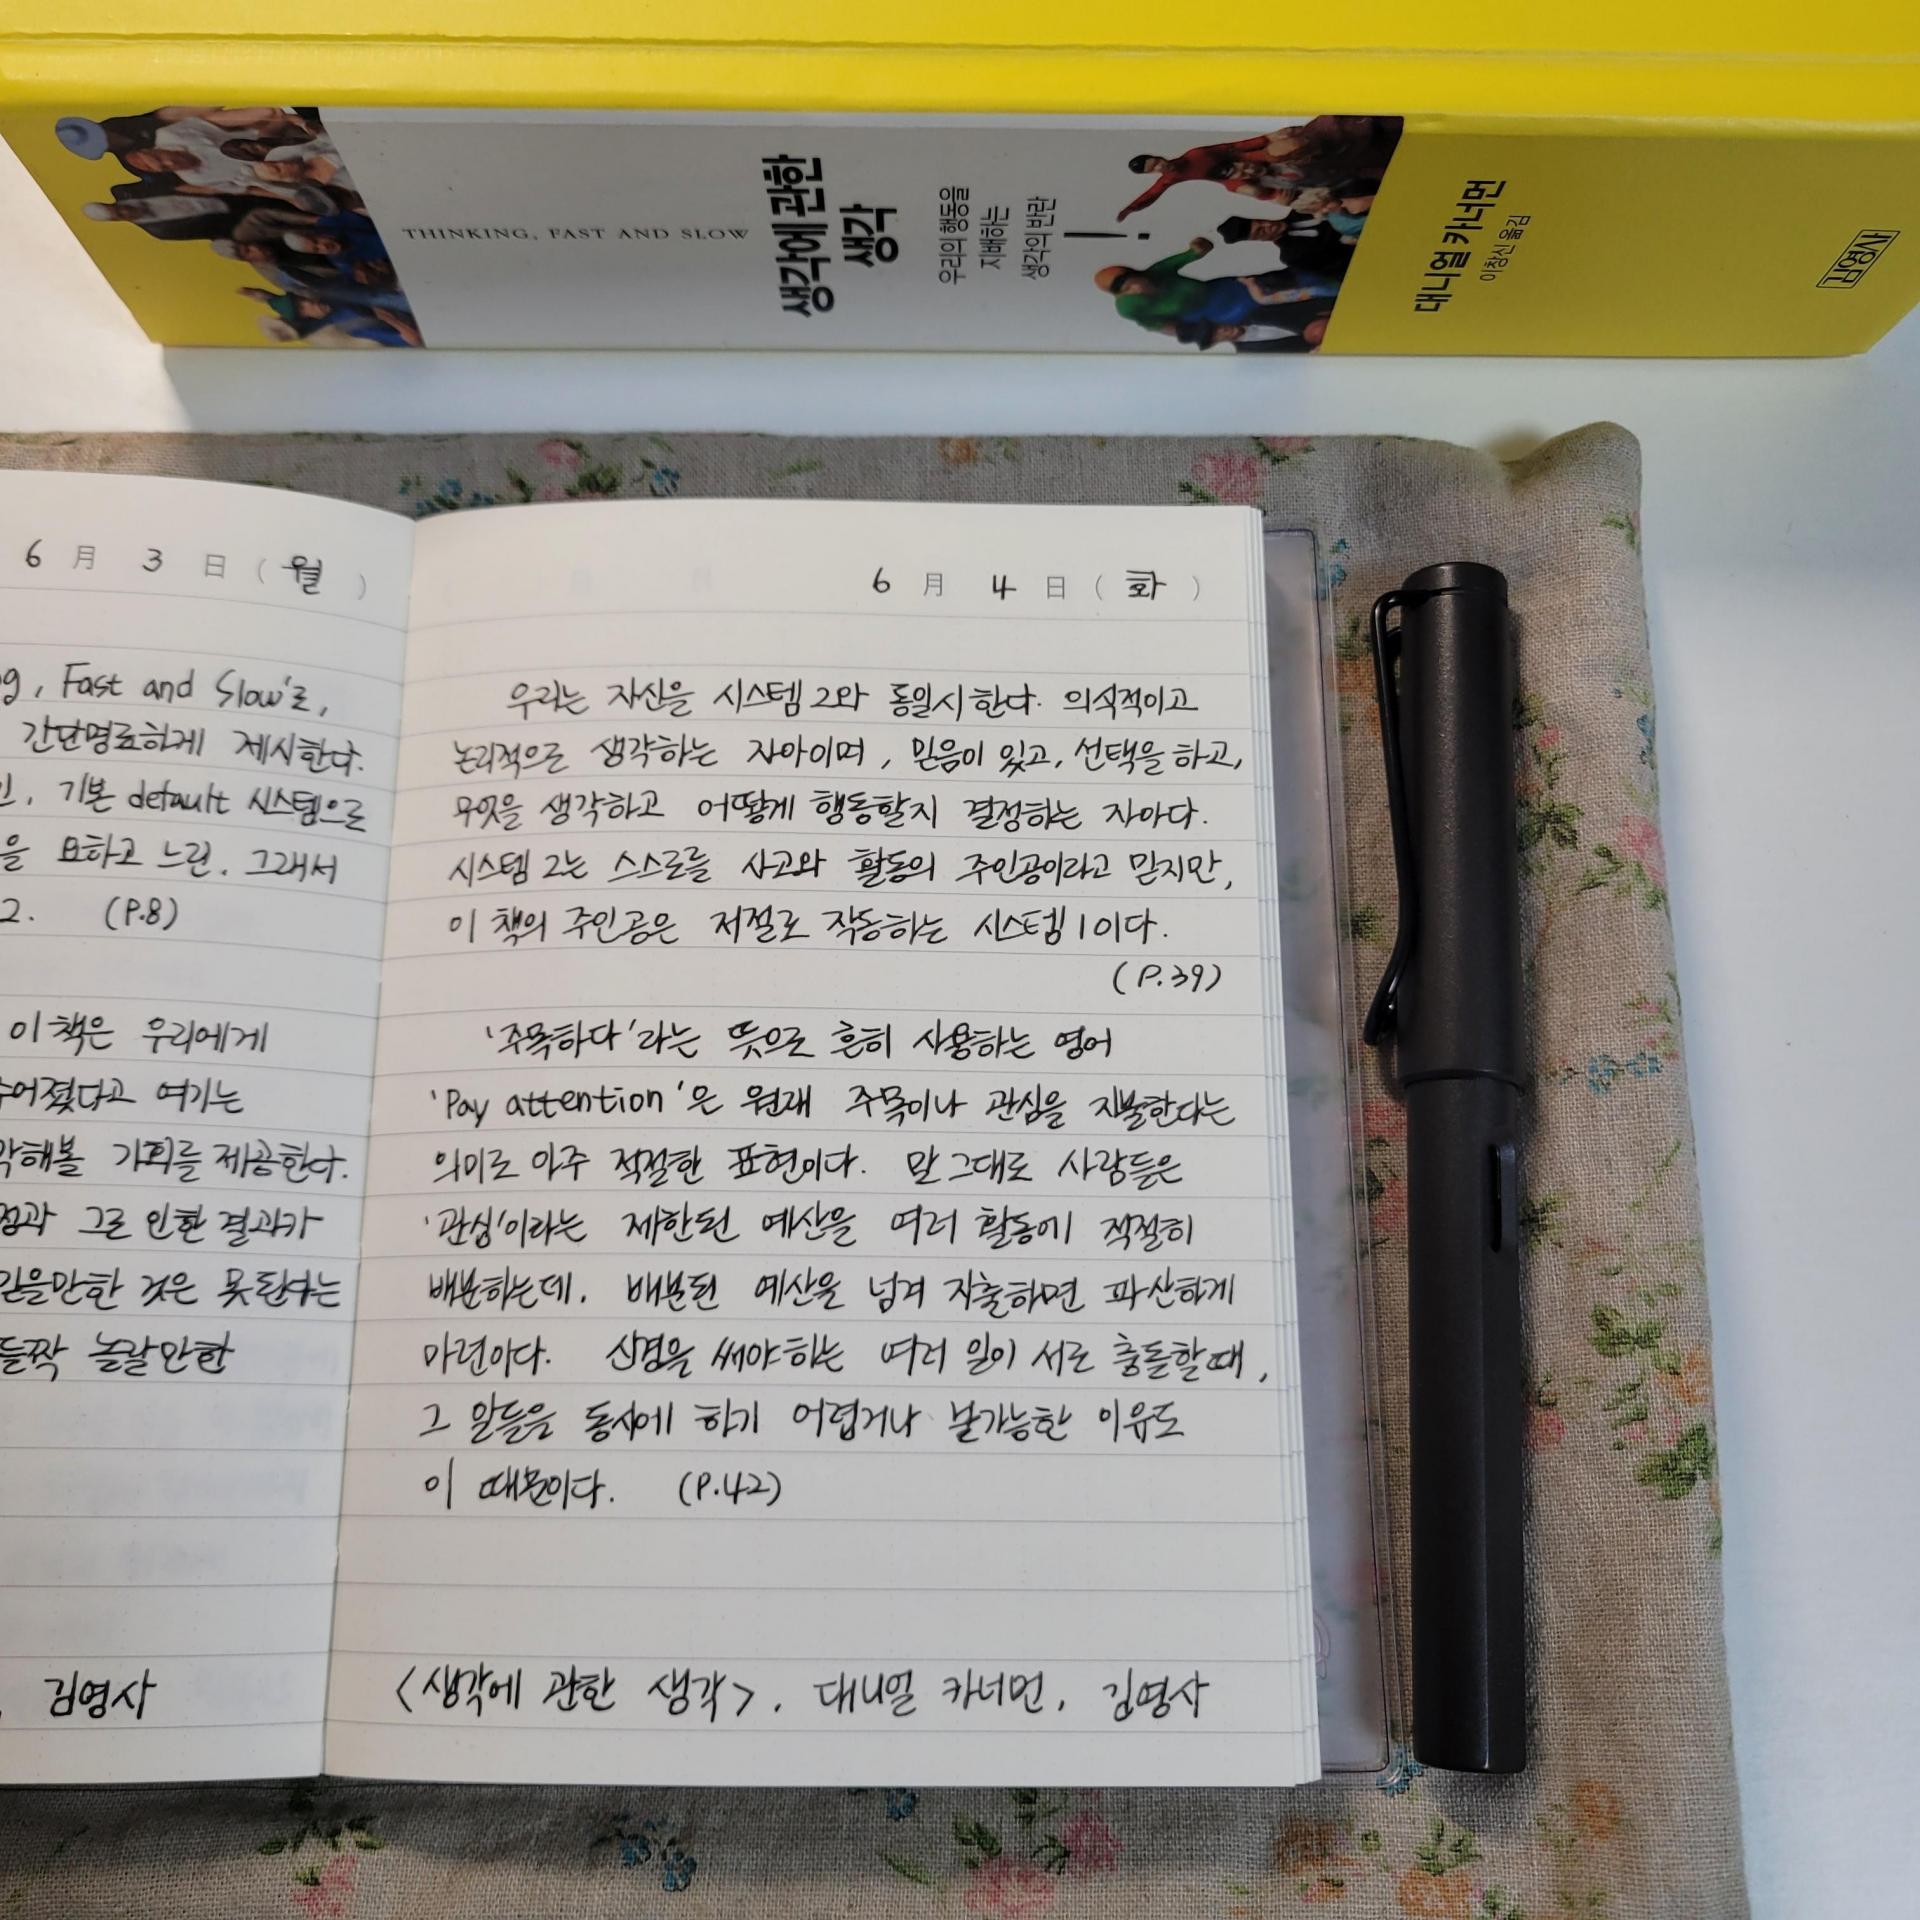 THINKING, FAST AND SLOW
생각에 관한
생각
우리의 행동을
지배하는
생각의 반란
!
대니얼 카너먼
이창신 옮김
김영사
6 月 3 日 ( 월 )
g, Fast and Slow'로,
간단명료하게 제시한다.
인, 기본 default 시스템으로
을 요하고 느린. 그래서
2. (P.8)
이 책은 우리에게
주어졌다고 여기는
각해볼 기회를 제공한다.
점과 그로 인한 결과가
믿을만한 것은 못된다는
들짝 놀랄만한
, 김영사
6 月 4 日 ( 화 )
우리는 자신을 시스템 2와 동일시 한다. 의식적이고
논리적으로 생각하는 자아이며, 믿음이 있고, 선택을 하고,
무엇을 생각하고 어떻게 행동할지 결정하는 자아다.
시스템 2는 스스로를 사고와 활동의 주인공이라고 믿지만,
이 책의 주인공은 저절로 작동하는 시스템 1이다.
(P.39)
'주목하다'라는 뜻으로 흔히 사용하는 영어
'Pay attention'은 원래 주목이나 관심을 지불한다는
의미로 아주 적절한 표현이다. 말 그대로 사람들은
'관심'이라는 제한된 예산을 여러 활동에 적절히
배분하는데, 배분된 예산을 넘겨 지출하면 파산하게
마련이다. 신경을 써야하는 여러 일이 서로 충돌할 때,
그 일들을 동시에 하기 어렵거나 불가능한 이유도
이 때문이다. (P.42)
<생각에 관한 생각>, 대니얼 카너먼, 김영사